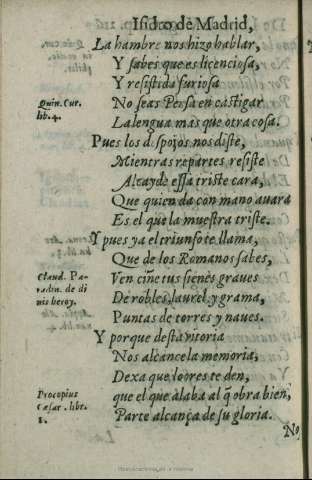 Isidro de Madrid,
La hambre nos hizo hablar,
Y sabes que es licenciosa,
Y resistida furiosa
Quin. Cur.
lib. 4.
No seas Persa en castigar
La lengua mas que otra cosa.
Pues los d spojos nos diste,
Mientras repartes resiste
Alcayde essa triste cara,
Que quien da con mano auara
Es el que la muestra triste.
Y pues ya el triunfo te llama,
Que de los Romanos sabes,
Claud. Pa-
de di
Ven ciñe tus sienes graues
De robles, laurel, y grama,
Puntas de torres y naues.
Y porque desta vitoria
Nos alcance la memoria,
Dexa que loores te den,
Procopius
Cæsar. libr.
1.
que el que alaba al q̃ obra bien,
Parte alcança de su gloria.
No